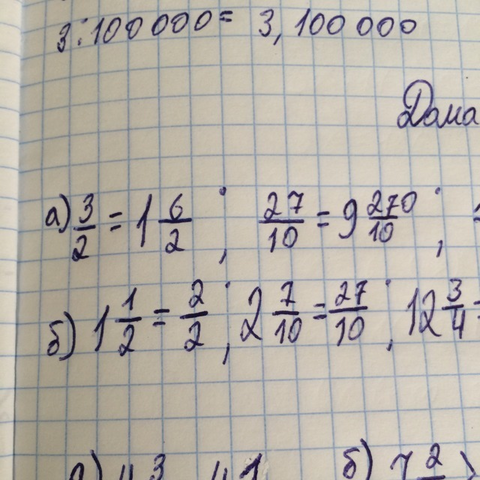 3:100 000 = 3, 100 000
Дома
а) 3/2 = 1 6/2 ; 27/10 = 9 270/10 ;
б) 1 1/2 = 2/2 ; 2 7/10 = 27/10 ; 12 3/4 =
б) 7 2